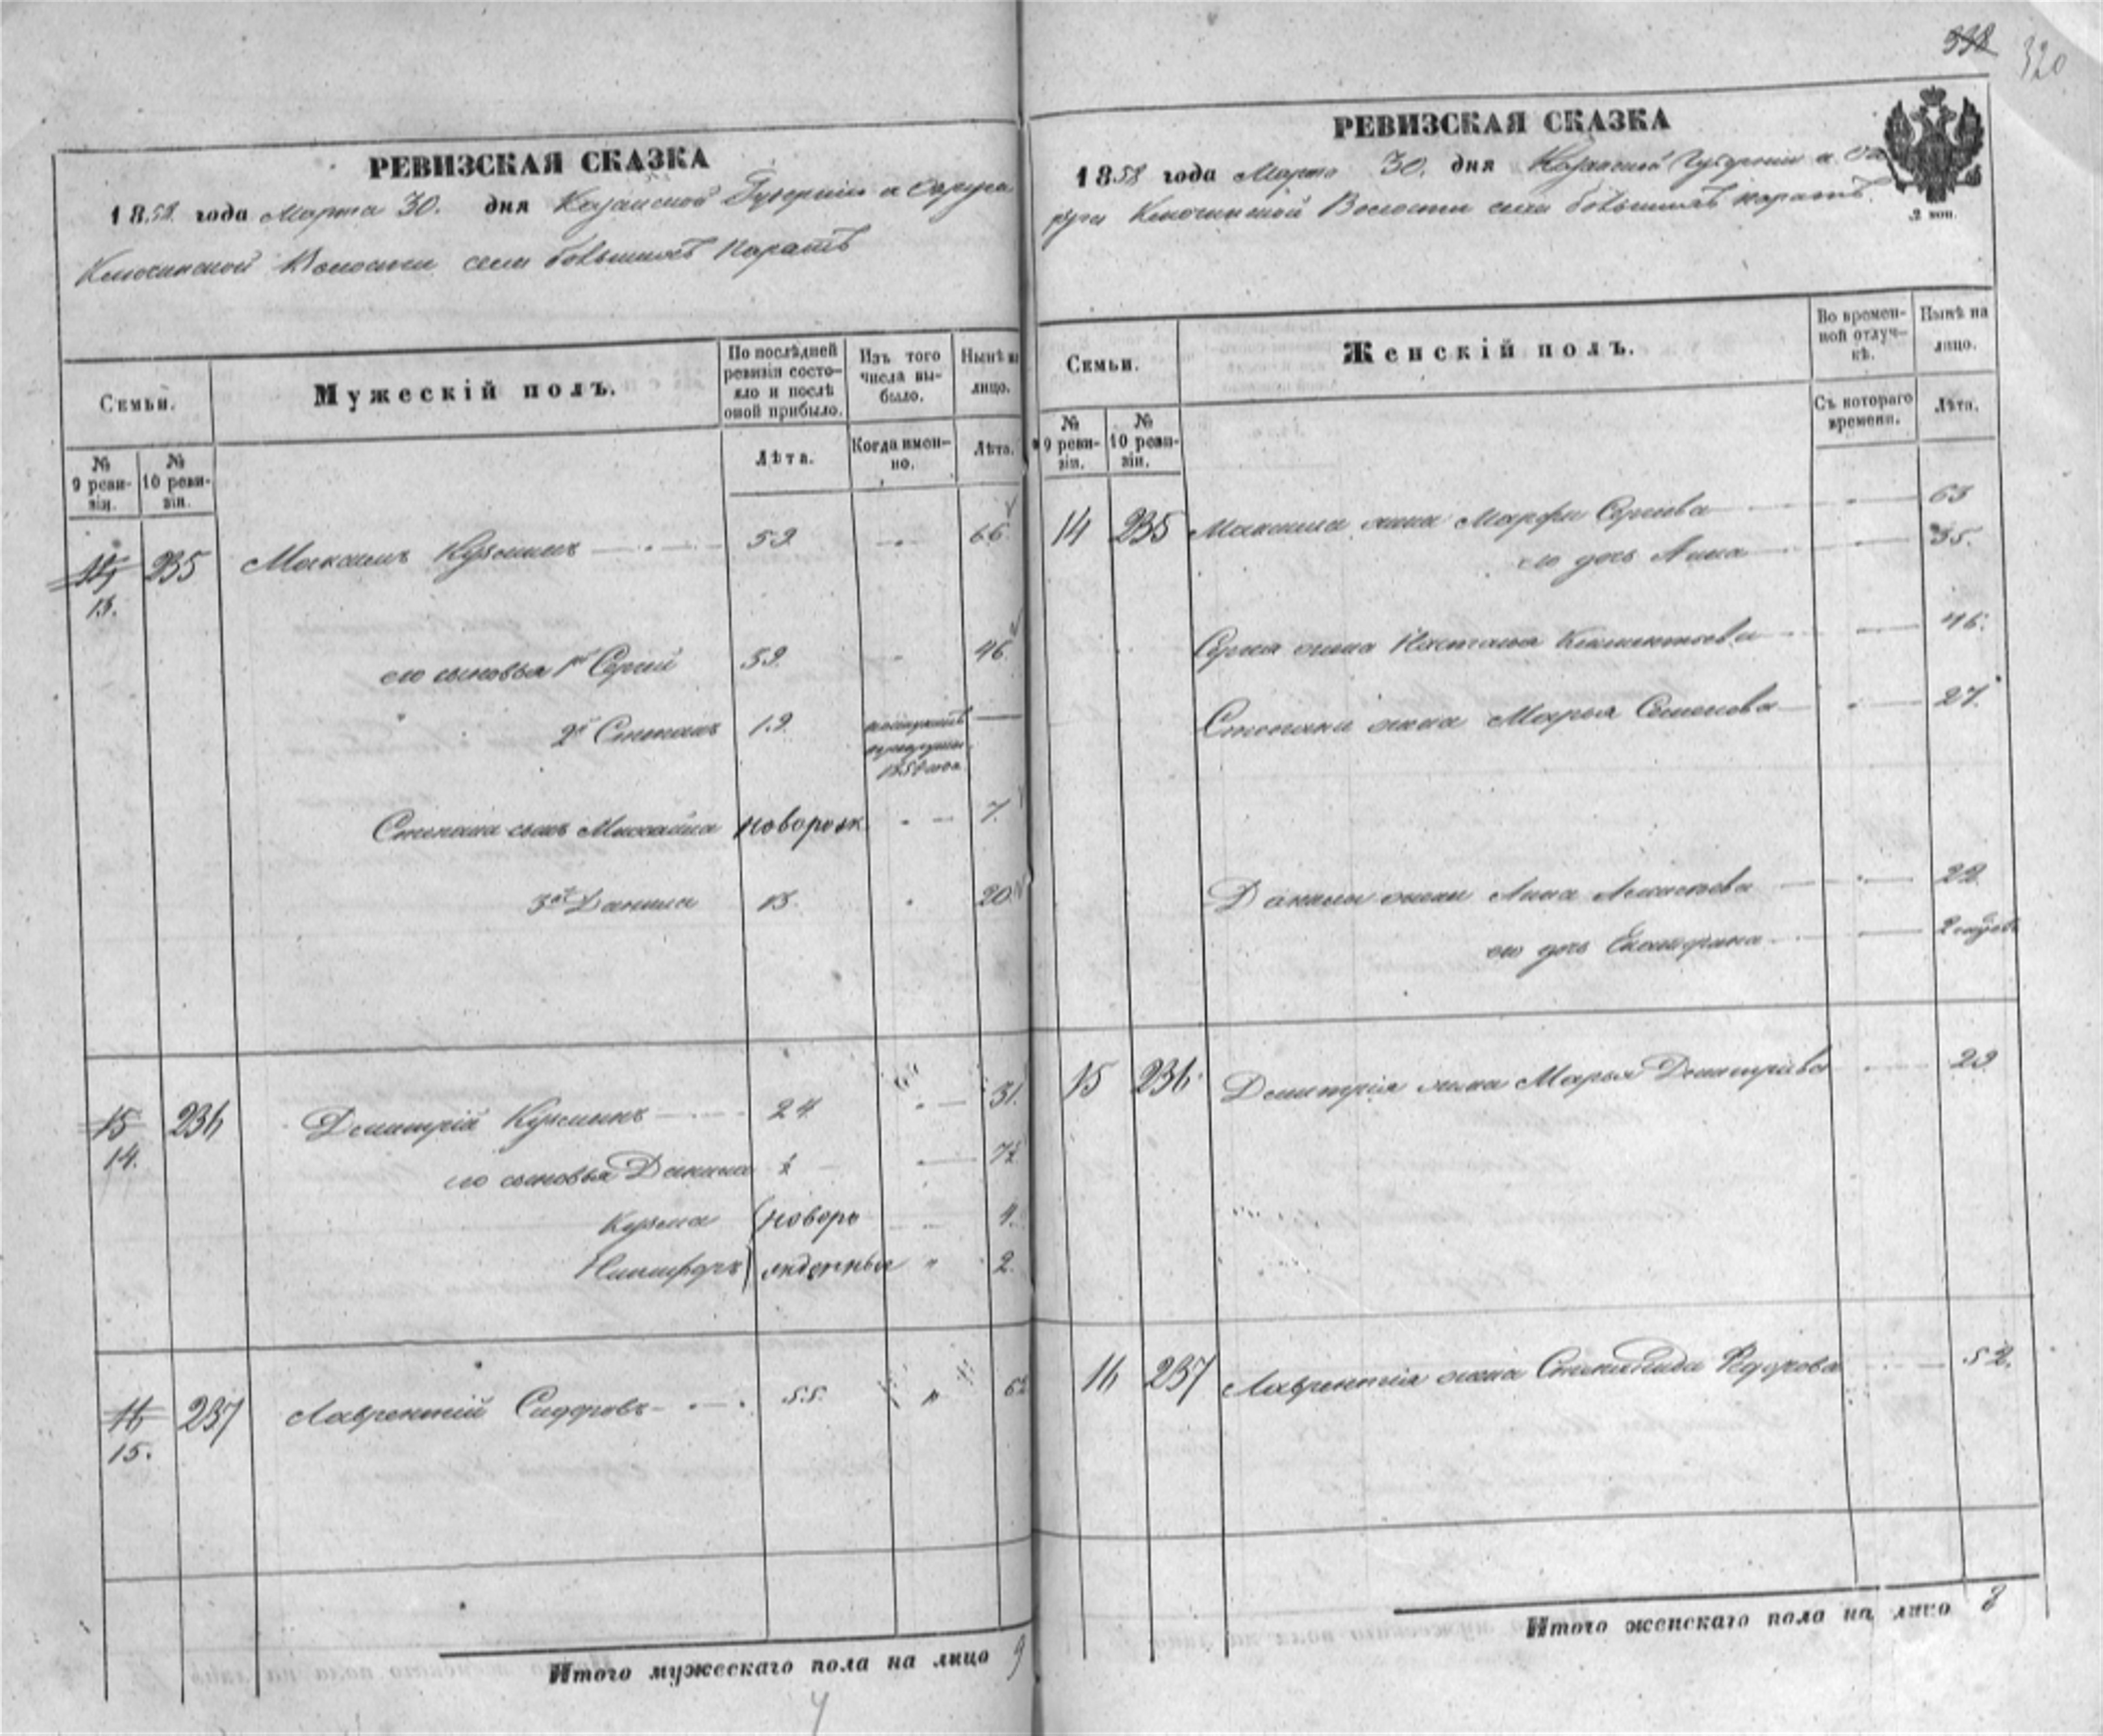 РЕВИЗСКАЯ СКАЗКА
1858 года Марта 30. дня Казанской Губернии и Округа
Ключинской Волости села большихъ Каратъ
Семьи.
Мужескій полъ.
По послѣдней ревизіи состо-
яло и послѣ оной прибыло.
Изъ того числа вы-
было.
Нынѣ на лицо.
№ 9 реви-
зіи.
№ 10 реви-
зіи.
Лѣта.
Когда имен-
но.
Лѣта.
14 235 Максимъ Кузьминъ 59 66
13.
его сыновья 1й Сергий 39 46
2й Степанъ 19
Степана сынъ Михайла новорож. 7.
3й Данила 13. 20.
15 236 Димитрій Кузьминъ 24 31.
14.
его сыновья Данила ½ 7½
Кузма новоро 4.
Никифоръ жденные 2.
16 237 Лаврентій Сидоровъ 55. 62
15.
Итого мужескаго пола на лицо 9
338 320
РЕВИЗСКАЯ СКАЗКА
1858 года Марта 30. дня Казанской Губернии и Ок
руга Ключинской Волости села большихъ Каратъ
2 коп.
Семьи.
Женскій полъ.
Во времен-
ной отлуч-
кѣ.
Нынѣ на лицо.
№ 9 реви-
зіи.
№ 10 реви-
зіи.
Съ котораго времени.
Лѣта.
14 235 Максима жена Марфа Сергиева 63
его дочь Анна 35.
Сергия жена Настасья Климентьева 46.
Степана жена Марья Семенова 27.
Данилы жена Анна 22
его дочь Екатерина
15 236 Димитрія жена Марья Димитриева 29
16 237 Лаврентія жена Степанида Федорова 52.
Итого женскаго пола на лицо 8